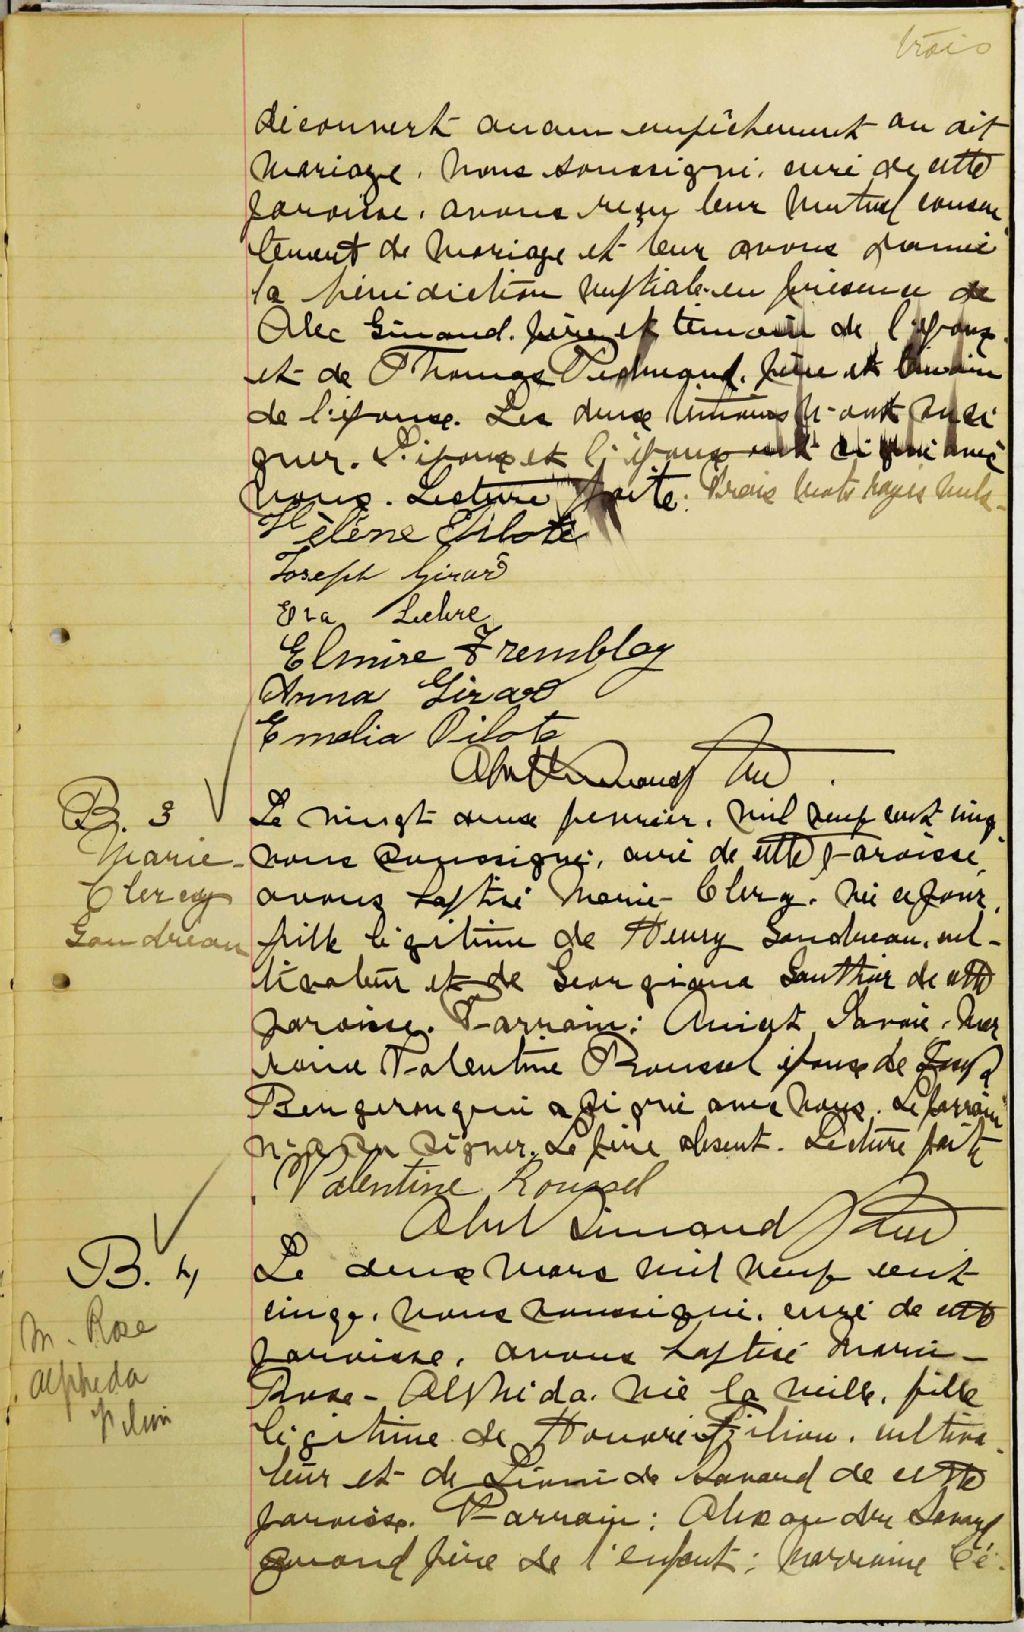 trois
découvert aucun empêchement au dit
mariage, nous soussigné, curé de cette
paroisse, avons reçu leur mutuel consen
tement de mariage et leur avons donné
la bénédiction nuptiale en présence de
Alec Girard, père et témoin de l'époux
et de Thomas père et témoin
de l'épouse. Les deux témoins n'ont su si
gner. L'époux et l'épouse ont signé avec
nous. Lecture faite. Trois mots rayés nuls
Hélène Pilote
Joseph Girard
Eva
Elmire Tremblay
Anna Girard
Emelia Pilote
Abel Simard Ptre
B. 3
Marie
Clercy
Gaudreau
Le vingt deux février, mil neuf cent cinq
nous soussigné, curé de cette paroisse,
avons baptisé Marie-Clercy, née ce jour,
fille légitime de Henry Gaudreau, cul-
tivateur et de Georgiana Gauthier de cette
paroisse. Parrain: Savoie, Mar
raine Valentine Roussel épouse de
Bergeron qui a signé avec nous. Le parrain
n'a su signer. Le père absent. Lecture faite
Valentine Roussel
Abel Simard Ptre
B. 4
M. Rose
Alphéda
Filion
Le deux mars mil neuf cent
cinq, nous soussigné, curé de cette
paroisse, avons baptisé Marie-
Rose-Alphéda, née la veille, fille
légitime de Honoré Filion, cultiva
teur et de Savard de cette
paroisse. Parrain: Alexandre Savard
grand père de l'enfant; marraine Cé-